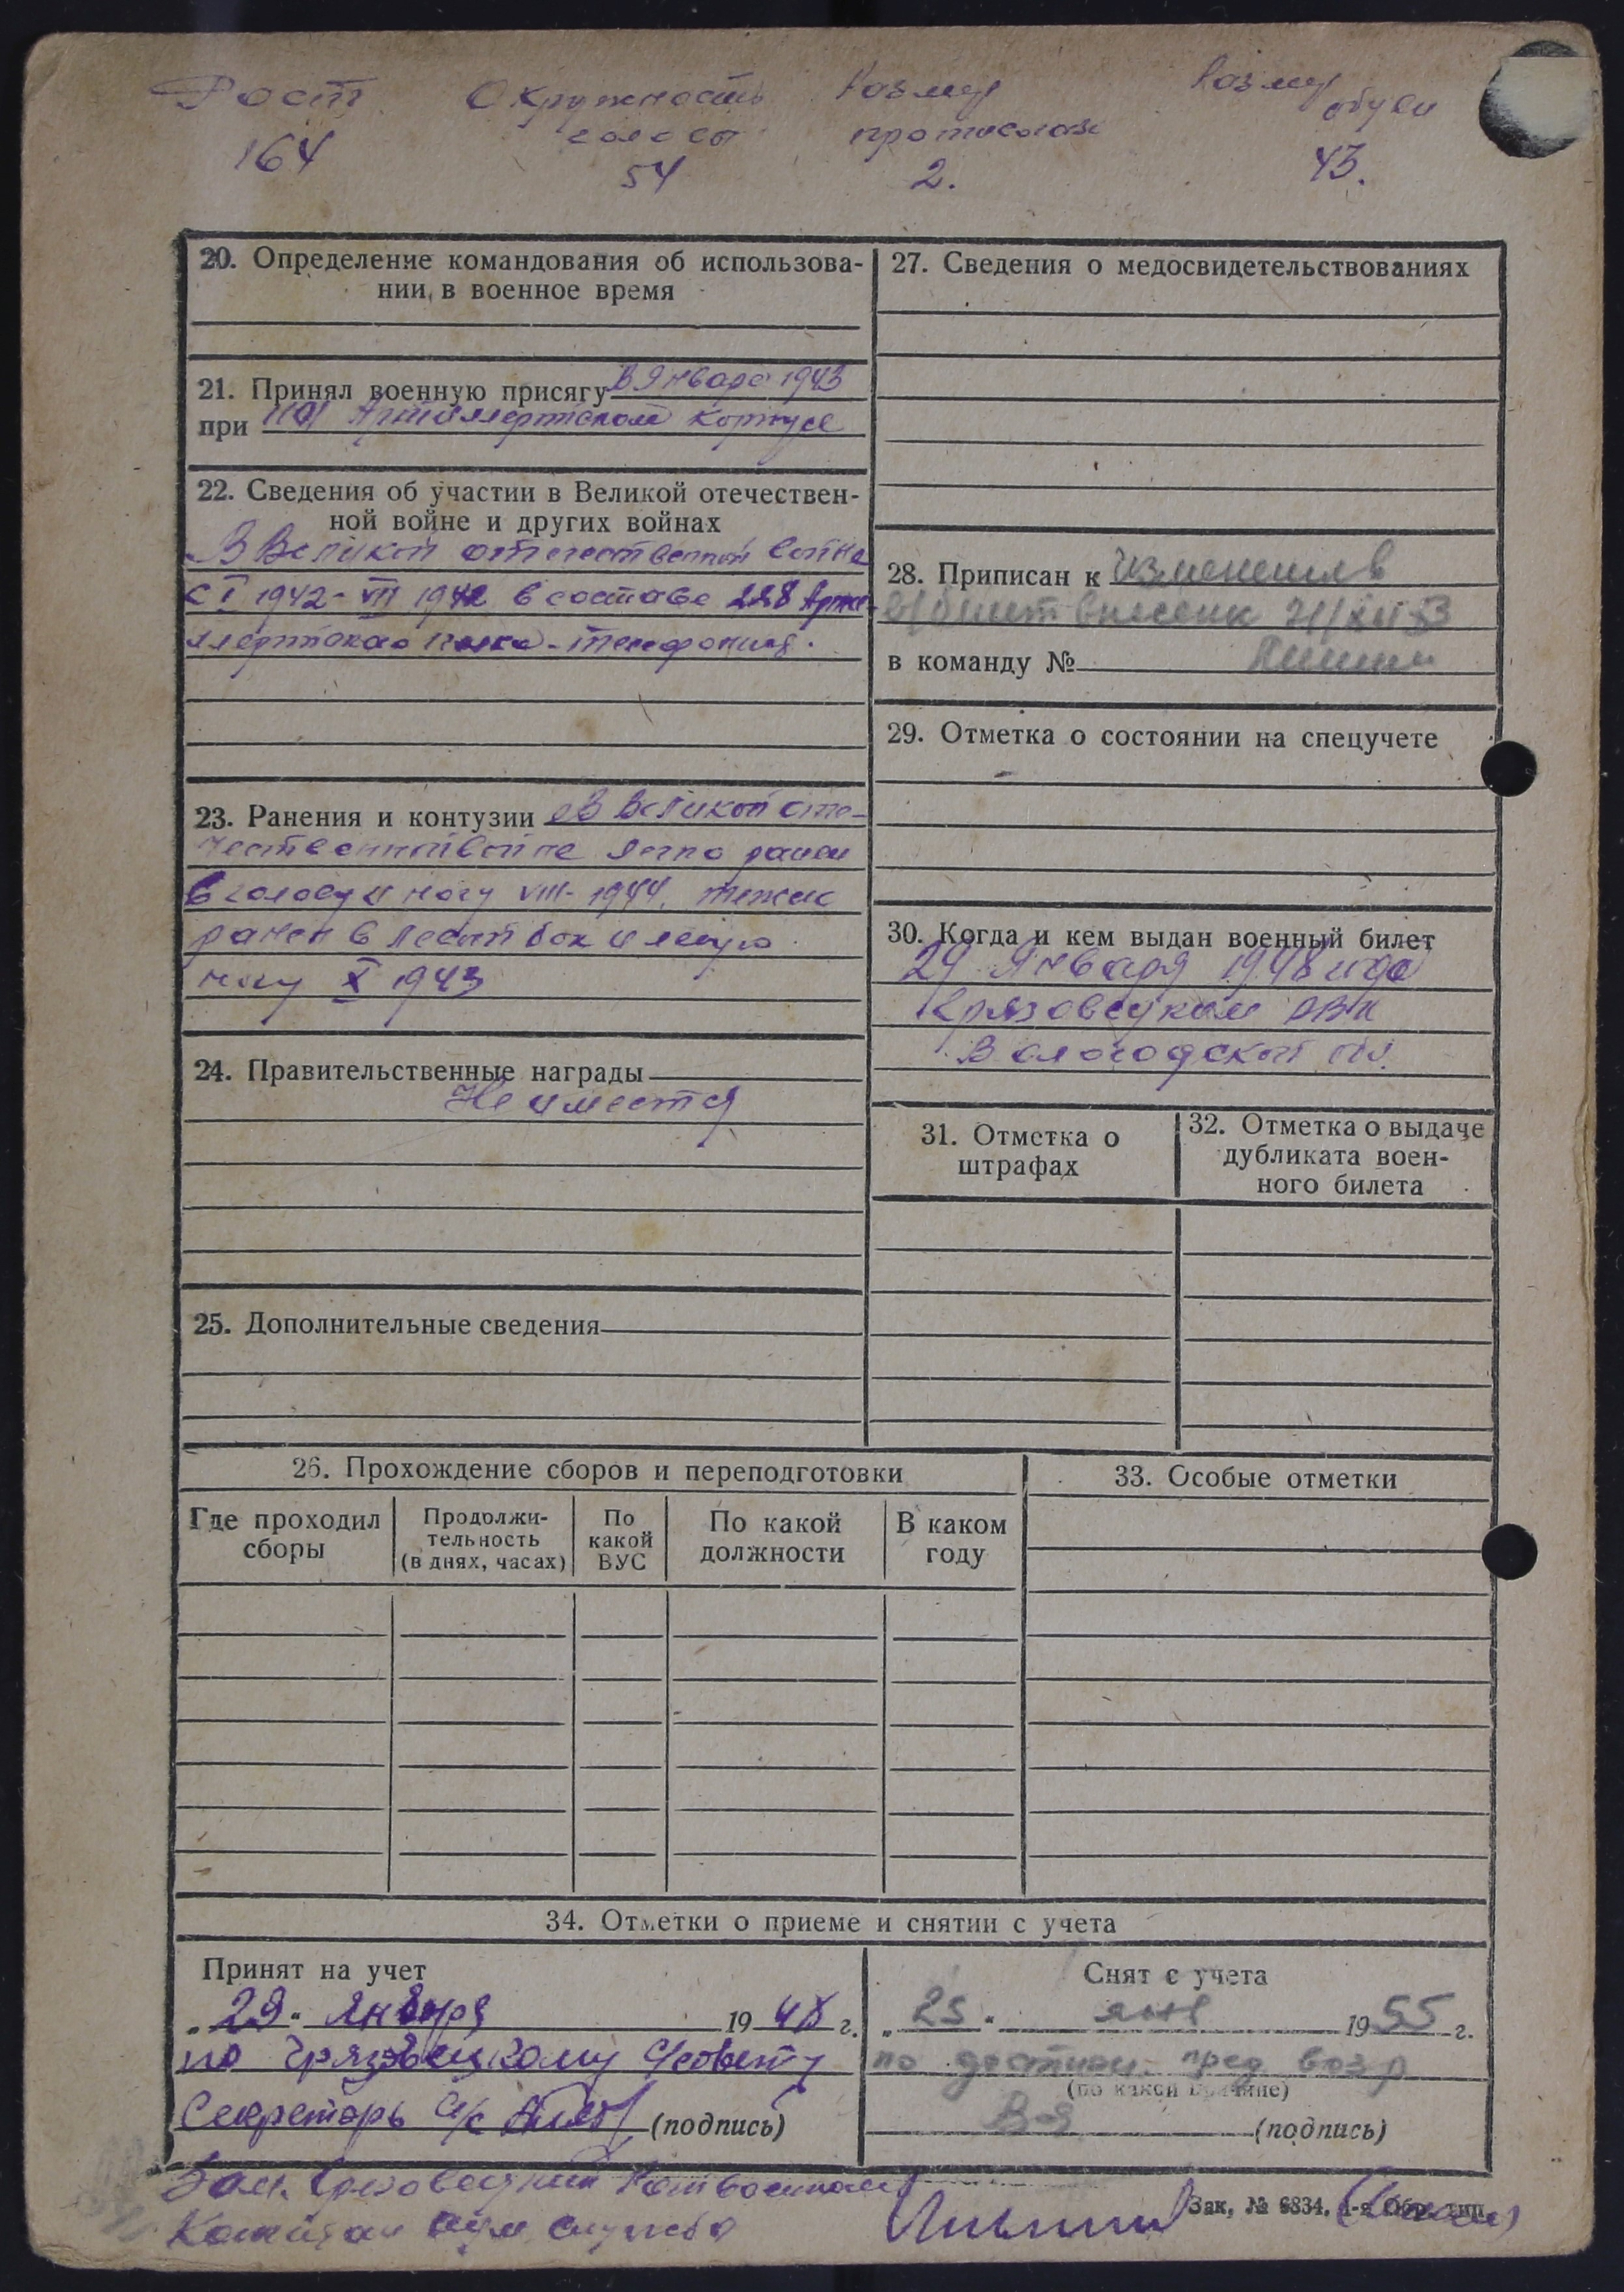 Рост Окружность Размер Размер
головы противогаза обуви
164 54 2. 43.
20. Определение командования об использова-
нии в военное время
21. Принял военную присягу в Январе 1943
при Артиллертском корпусе
22. Сведения об участии в Великой отечествен-
ной войне и других войнах
В Великой отечественной войне
с I 1942 - VII 1942 в составе 228 Арти-
ллертского полка - телефонист.
23. Ранения и контузии В Великой оте-
чественной войне легко ранен
в голову и ногу VIII - 1944, тяжело
ранен в левый бок и левую
ногу X 1943
24. Правительственные награды
Не имеется
25. Дополнительные сведения
26. Прохождение сборов и переподготовки
Где проходил
сборы
Продолжи-
тельность
(в днях, часах)
По
какой
ВУС
По какой
должности
В каком
году
27. Сведения о медосвидетельствованиях
28. Приписан к изменения в
в/билет внесены
в команду №
29. Отметка о состоянии на спецучете
30. Когда и кем выдан военный билет
29 Января 1948 года
Грязовецким РВК
Вологодской обл.
31. Отметка о
штрафах
32. Отметка о выдаче
дубликата воен-
ного билета
33. Особые отметки
34. Отметки о приеме и снятии с учета
Принят на учет
„29" Января 1948 г.
по Грязовецкому С/совету
Секретарь с/с (подпись)
Снят с учета
„25" янв 1955 г.
по достиж. пред возр
(по какой причине)
(подпись)
Зам. Грязовецкий Райвоенком
Капитан адм. службы
Зак. № 6834. 1-я Обр. тип.